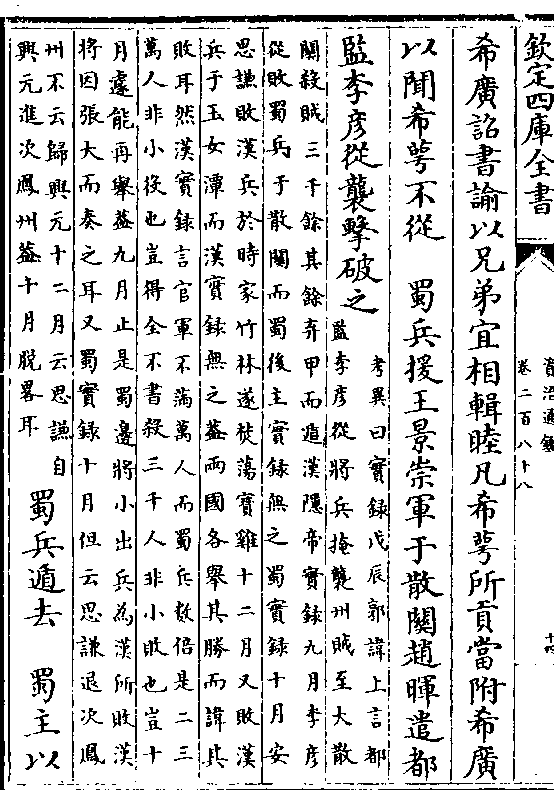 欽定四庫全書
資治通鑑
卷二百八十八
希廣詔書諭以兄弟宜相輯睦凡希萼所貢當附希廣
以聞希萼不從　蜀兵援王景崇軍于散關趙暉遣都
監李彥從襲擊破之
考異曰實錄戊辰郭諱上言都
監李彥從將兵掩襲州賊至大散
關殺賊三千餘其餘弃甲而遁漢隱帝實錄九月李彥
從敗蜀兵于散關而蜀後主實錄無之蜀實錄十月安
思謙敗漢兵於時家竹林遂焚蕩寶雞十二月又敗漢
兵于玉女潭而漢實錄無之葢兩國各舉其勝而諱其
敗耳然漢實錄言官軍不滿萬人而蜀兵數倍是二三
萬人非小役也豈得全不書殺三千人非小敗也豈十
月遽能再舉葢九月止是蜀邊將小出兵為漢所敗漢
將因張大而奏之耳又蜀實錄十月但云思謙退次鳳
州不云歸興元十二月云思謙自
興元進次鳳州葢十月脫畧耳
蜀兵遁去　蜀主以